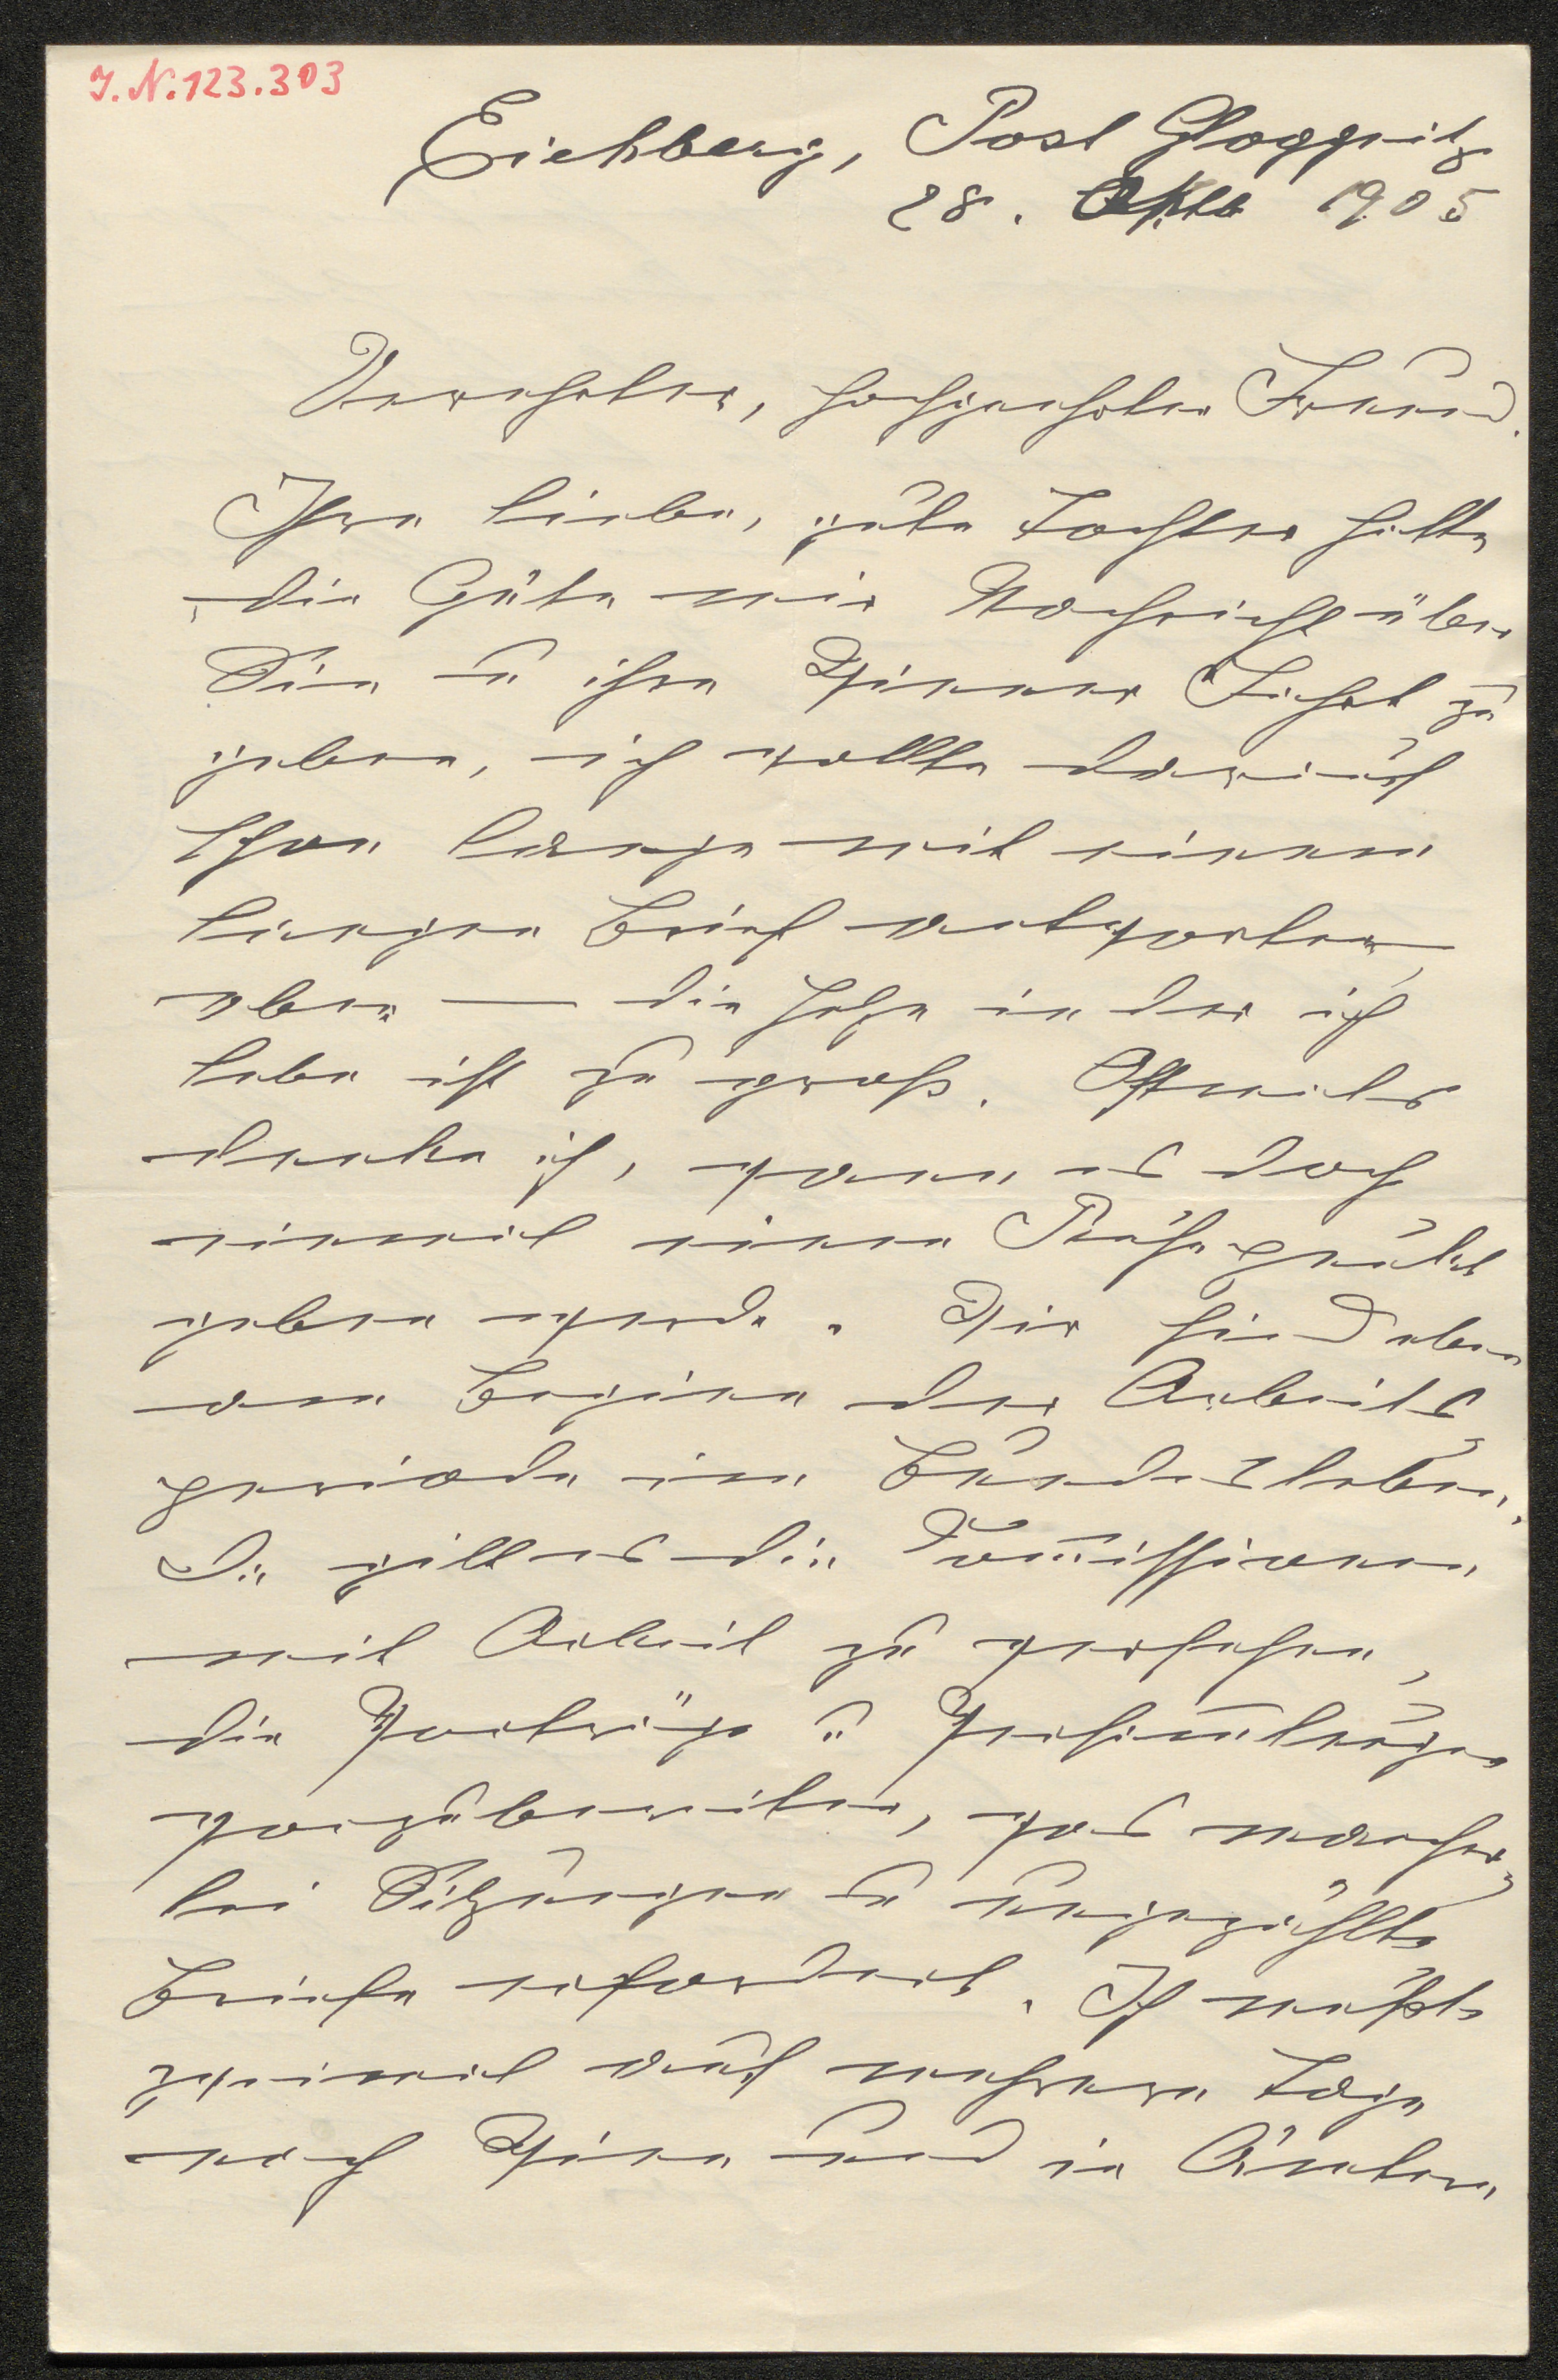 J. N. 123.303
Eichberg, Post Gloggnitz
28. Okto 1905
Verehrter, hochgeehrter Freund.
Ihre liebe, gute Tochter hatte
die Güte mir Nachricht über
Sie u ihre Wiener Fahrt zu
geben, ich wollte darauf
schon lange mit einem
langen Brief antworten,
aber — die Hetze in der ich
lebe ist zu groß. Oftmals
denke ich, wann es doch
einmal einen Ruhepunkt
geben werde. Wir sind eben
am Beginn der Arbeits-
periode im Bundesleben.
Da gilt es die Commissionen
mit Arbeit zu versehen,
die Vorträge u Versammlungen
vorzubereiten, was mancher-
lei Sitzungen u ungezählte
Briefe erfordert. Ich mußte
zweimal auf mehrere Tage
nach Wien und in Ämtern